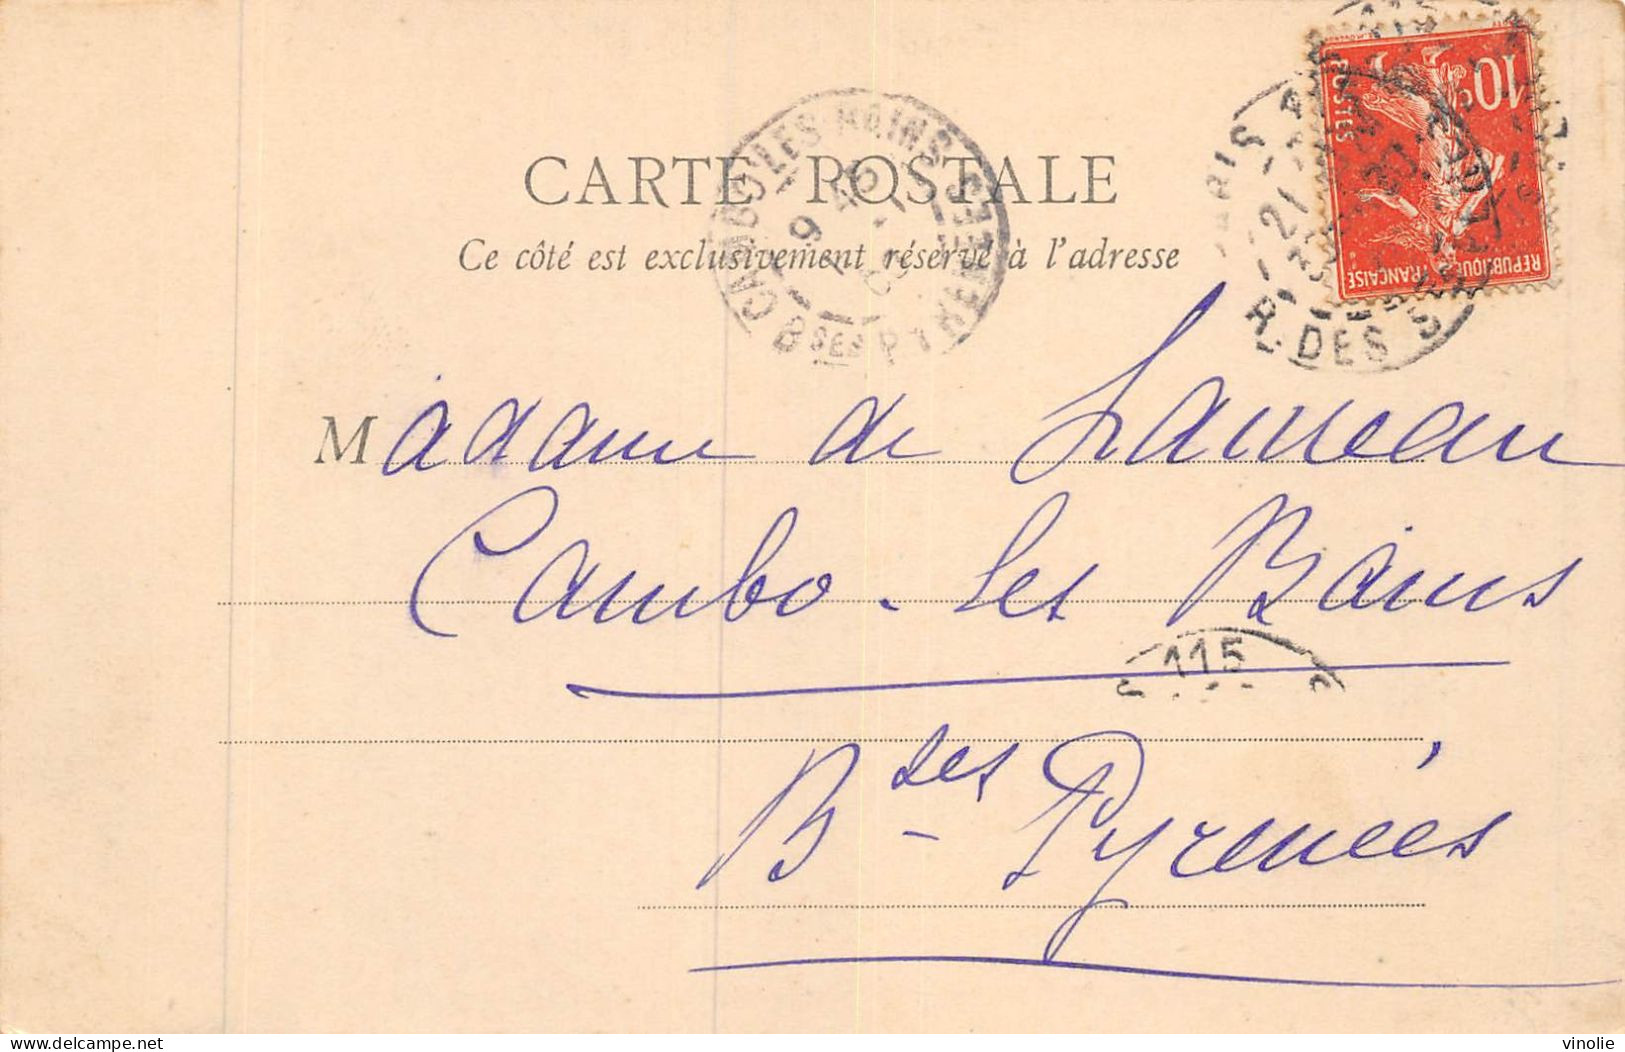 CARTE POSTALE
Ce côté est exclusivement réservé à l'adresse
10c
POSTES
REPUBLIQUE FRANÇAISE
CAMBO LES BAINS
9 45
BSES PYRENEES
PARIS
21
R. DES
Madame de
Cambo-les Bains
115
Bses-Pyrénées
www.delcampe.net
vinolie